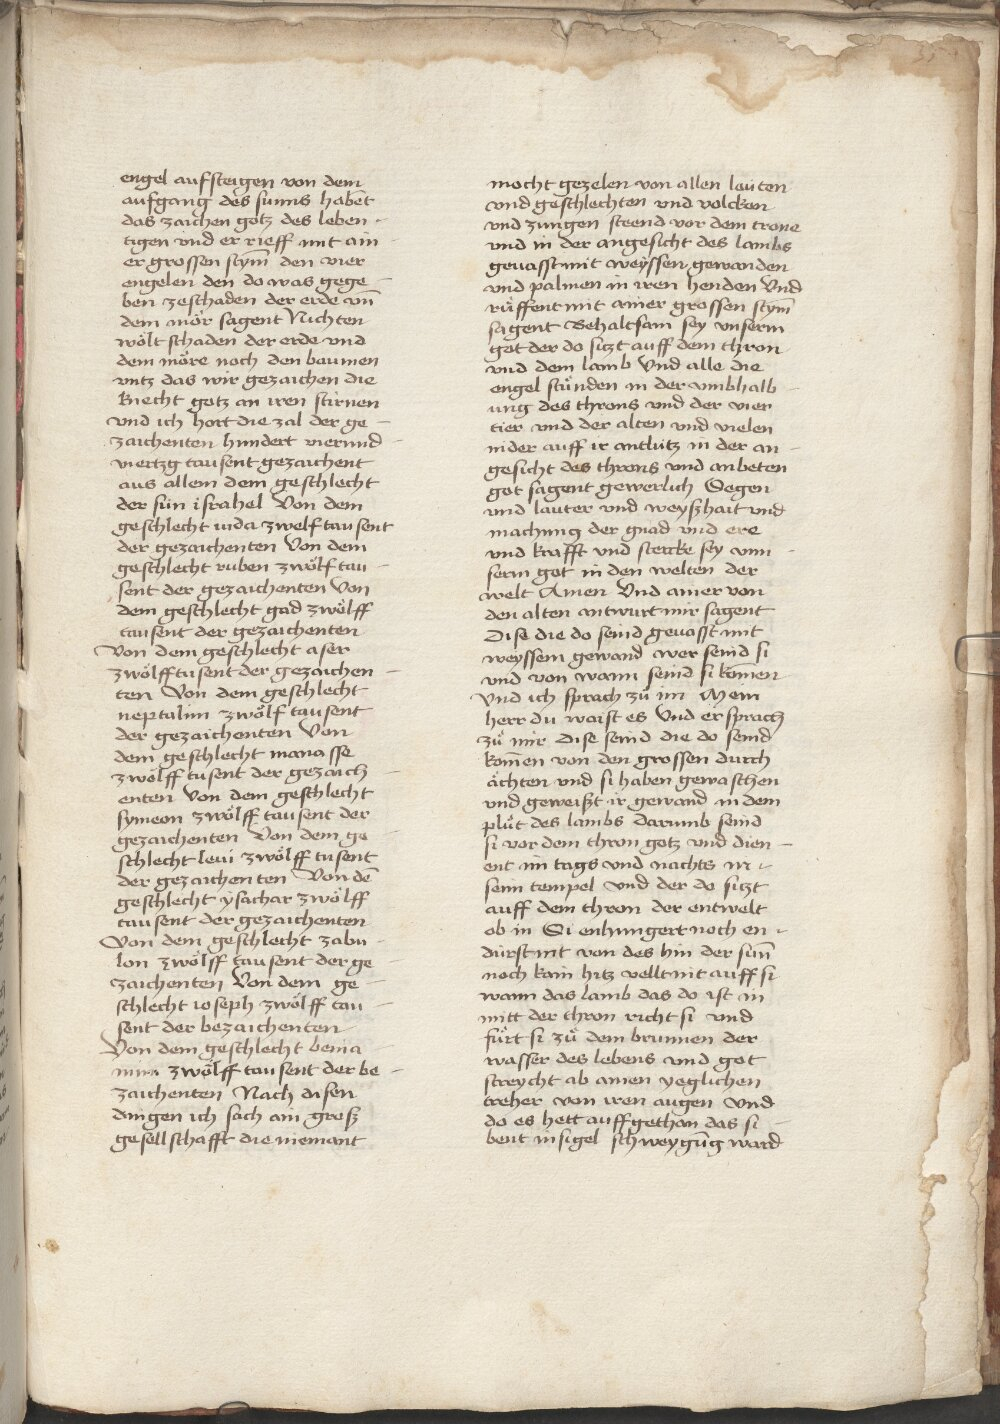 engel aufsteigen von dem
aufgang des sunns habet
das zaichen gotz des leben -
tigen vnd er rieff mit ain -
er grossen stym̄ den vier
engelen den do was gege -
ben zeschaden der erde vn̄
dem mör sagent Nichten
wölt schaden der erde vnd
dem möre noch den baumen
vntz das wir gezaichen die
knecht gotz an iren stirnen
vnd ich hort die zal der ge -
zaichenten hundert vierund -
viertzg tausent gezaichent
aus allem dem geschlecht
der sün israhel Von dem
geschlecht iuda zwelf tausent
der gezaichenten Von dem
geschlecht ruben zwölf tau -
sent der gezaichenten Von
dem geschlecht gad zwölff
tausent der gezaichenten
Von dem geschlecht aser
zwölff tusent der gezaichen -
ten Von dem geschlecht
neptalim zwölf tausent
der gezaichenten Von
dem geschlecht manasse
zwölff tusent der gezaich -
enten Von dem geschlecht
symeon zwölff tausent der
gezaichenten Von dem ge -
schlecht leui zwölff tusent
der gezaichenten Von dē
geschlecht ysachar zwölff
tausent der gezaichenten
Von dem geschlecht zabu -
lon zwölff tausent der ge -
zaichenten Von dem ge -
schlecht ioseph zwölff tau -
sent der bezaichenten
Von dem geschlecht benia -
min zwölff tausent der be -
zaichenten Nach disen
dingen ich sach ain groß
gesellschafft die niemant
mocht gezelen von allen leüten
vnd geschlechten vnd volcken
vnd zungen steend vor dem trone
vnd in der angesicht des lambs
geuasst mit weyssen gewanden
vnd palmen in iren henden Vnd
rüffent mit ainer grossen stym̄
sagent Behaltsam sey vnserm
got der do sitzt auff dem thron
vnd dem lamb Vnd alle die
engel stůnden in der vmbhalb -
ung des throns vnd der vier
tier vnd der alten vnd vielen
nider auff ir antlütz in der an -
gesicht des throns vnd anbeten
got sagent gewerlich Segen
vnd lauter vnd weyßhait vnd
machung der gnad vnd ere
vnd krafft vnd stercke sey vnn -
serm got in den welten der
welt Amen Vnd ainer von
den alten antwurt mir sagent
Dise die do seind geuasst mit
weyssem gewand wer seind si
vnd von wann seind si kom̄en
Vnd ich sprach zů im Mein
herr du waist es Vnd er sprach
zů mir Dise seind die do seind
kom̄en von den grossen durch
ächten vnd si haben gewaschen
vnd geweißt ir gewand in dem
plůt des lambs Darumb seind
si vor dem thron gotz vnd dien -
ent im tags vnd nachts in -
seim tempel Vnd der do sitzt
auff dem thron der entwelt
ob in Si enhungert noch en -
dürst nit von des hin der sun̄
noch kain hitz vellt nit auff si
wann das lamb das do ist in
mitt der thron richt si vnd
fürt si zů dem brunnen der
wasser des lebens vnd got
streycht ab ainen yeglichen
treher von iren augen Vnd
do es hett auffgethan das si -
bent insigel schweygūg ward